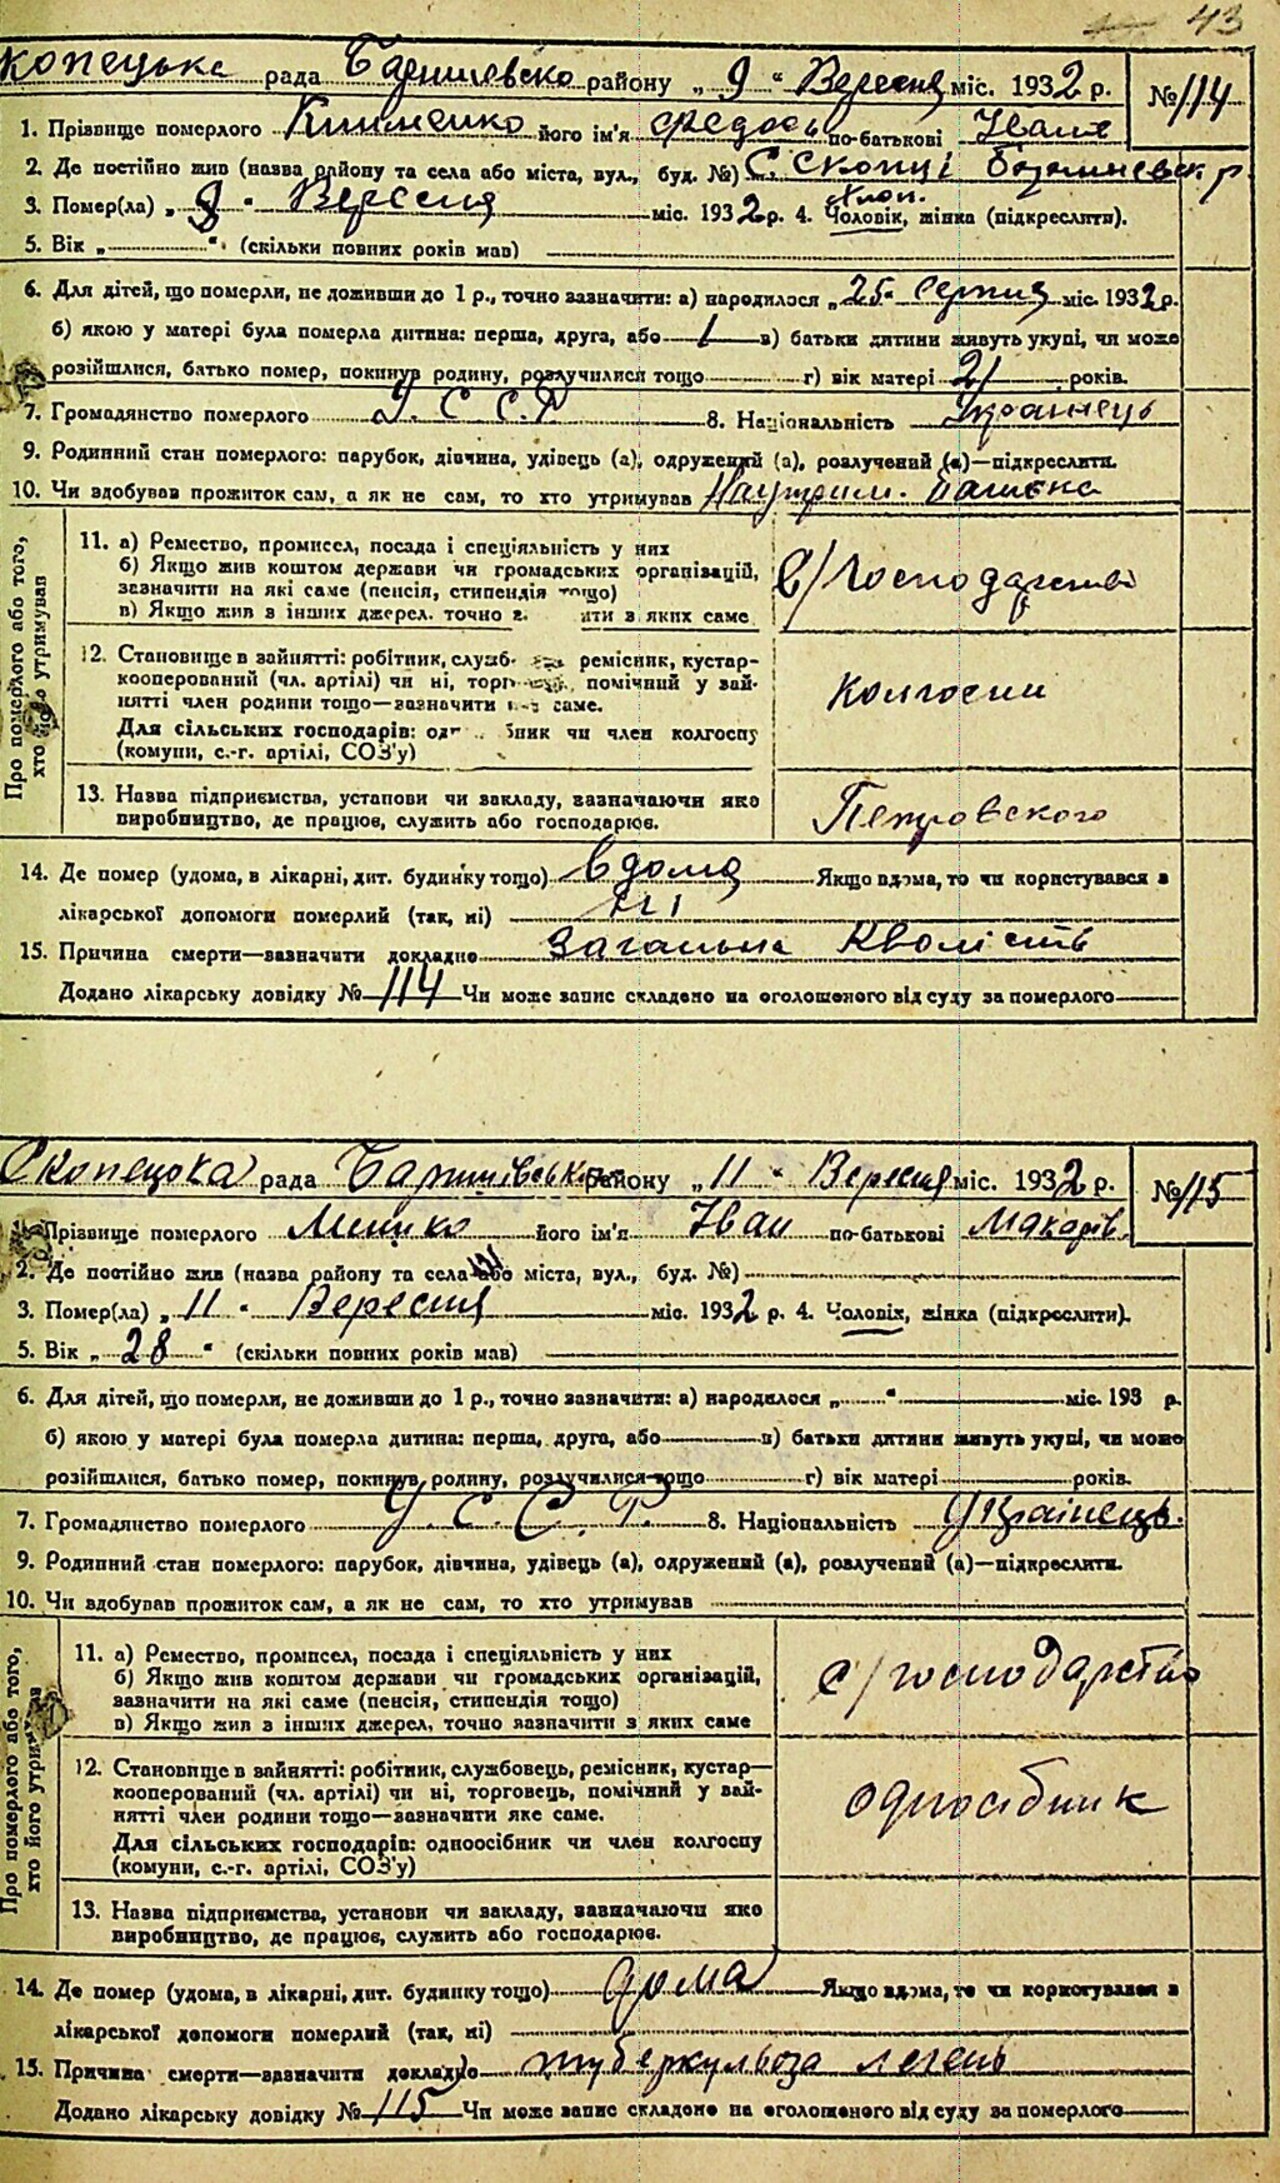 43
Скопецька рада Баришевсько району „9“ Вересня міс. 1932 р. № 114
1. Прізвище померлого Клименко його ім'я Федось по-батькові Іване
2. Де постійно жив (назва району та села або міста, вул., буд. №) С. Скопці Баришевськ р
3. Помер(ла) „9“ Вересня міс. 1932 р. 4. Чоловік, жінка (підкреслити).
Хлоп.
5. Вік „ “ (скільки повних років мав)
6. Для дітей, що померли, не доживши до 1 р., точно зазначити: а) народилося „25“ Серпня міс. 1932 р.
б) якою у матері була померла дитина: перша, друга, або 1 в) батьки дитини живуть укупі, чи може
розійшлися, батько помер, покинув родину, розлучилися тощо г) вік матері 21 років.
7. Громадянство померлого У. С. С. Р 8. Національність Українець
9. Родинний стан померлого: парубок, дівчина, удівець (а), одружений (а), розлучений (а)—підкреслити.
10. Чи здобував прожиток сам, а як не сам, то хто утримував На утрим. батька
Про померлого або того,
хто його утримував
11. а) Ремество, промисел, посада і спеціяльність у них
б) Якщо жив коштом держави чи громадських організацій,
зазначити на які саме (пенсія, стипендія тощо)
в) Якщо жив з інших джерел. точно з. ити з яких саме
в/господарстві
12. Становище в зайнятті: робітник, служб. ремісник, кустар-
кооперований (чл. артілі) чи ні, торг помічний у зай-
нятті член родини тощо—зазначити яке саме.
Для сільських господарів: од бник чи член колгоспу
(комуни, с.-г. артілі, СОЗ'у)
колгоспи
13. Назва підприємства, установи чи закладу, зазначаючи яко
виробництво, де працює, служить або господарює.
Петровского
14. Де помер (удома, в лікарні, дит. будинку тощо) вдома Якщо вдома, то чи користувався з
лікарської допомоги померлий (так, ні) ні
15. Причина смерти—зазначити докладно Загальна Кволість
Додано лікарську довідку № 114 Чи може запис складено на оголошеного від суду за померлого
Скопецька рада Баришівсько району „11“ Вересня міс. 1932 р. № 115
1. Прізвище померлого його ім'я Іван по-батькові Макарів.
2. Де постійно жив (назва району та села або міста, вул., буд. №)
3. Помер(ла) „11“ Вересня міс. 1932 р. 4. Чоловік, жінка (підкреслити).
5. Вік „28“ (скільки повних років мав)
6. Для дітей, що померли, не доживши до 1 р., точно зазначити: а) народилося „ “ міс. 193 р.
б) якою у матері була померла дитина: перша, друга, або в) батьки дитини живуть укупі, чи може
розійшлися, батько помер, покинув родину, розлучилися тощо г) вік матері років.
7. Громадянство померлого У. С. С. Р. 8. Національність Українець.
9. Родинний стан померлого: парубок, дівчина, удівець (а), одружений (а), розлучений (а)—підкреслити.
10. Чи здобував прожиток сам, а як не сам, то хто утримував
Про померлого або того,
хто його утримував
11. а) Ремество, промисел, посада і спеціяльність у них
б) Якщо жив коштом держави чи громадських організацій,
зазначити на які саме (пенсія, стипендія тощо)
в) Якщо жив з інших джерел, точно зазначити з яких саме
с/господарство
12. Становище в зайнятті: робітник, службовець, ремісник, кустар—
кооперований (чл. артілі) чи ні, торговець, помічний у зай-
нятті член родини тощо—зазначити яке саме.
Для сільських господарів: одноосібник чи член колгоспу
(комуни, с.-г. артілі, СОЗ'у)
односібник
13. Назва підприємства, установи чи закладу, зазначаючи яко
виробництво, де працює, служить або господарює.
14. Де помер (удома, в лікарні, дит. будинку тощо) дома Якщо вдома, то чи користувався з
лікарської допомоги померлий (так, ні)
15. Причина смерти—зазначити докладно туберкульоза легень
Додано лікарську довідку № 115 Чи може запис складено на оголошеного від суду за померлого